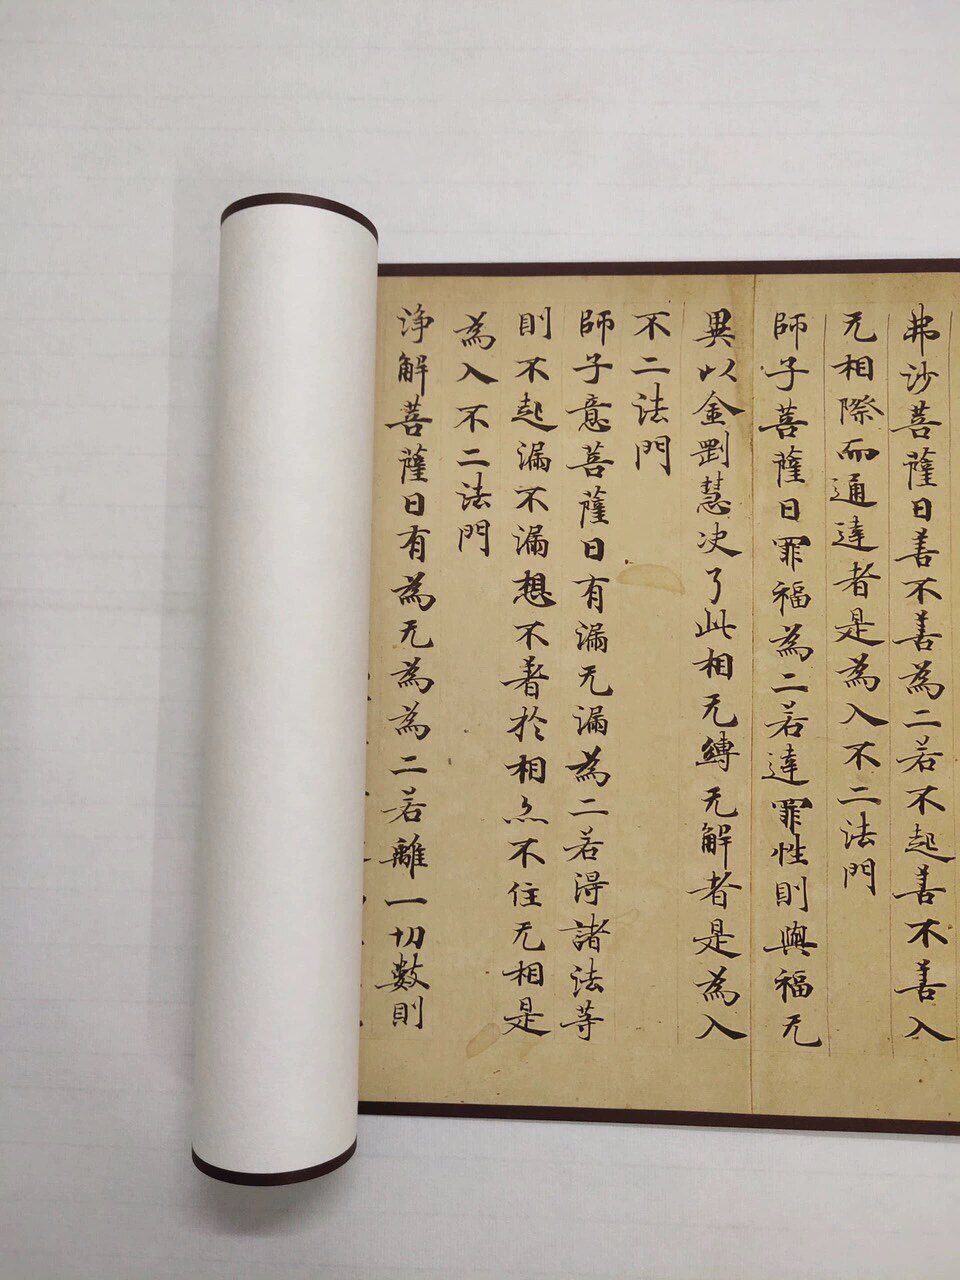 弗沙菩薩曰善不善為二若不起善不善入
无相際而通達者是為入不二法門
師子菩薩曰罪福為二若達罪性則與福无
異以金剛慧決了此相无縛无解者是為入
不二法門
師子意菩薩曰有漏无漏為二若得諸法等
則不起漏不漏想不著於相亦不住无相是
為入不二法門
淨解菩薩曰有為无為為二若離一切數則